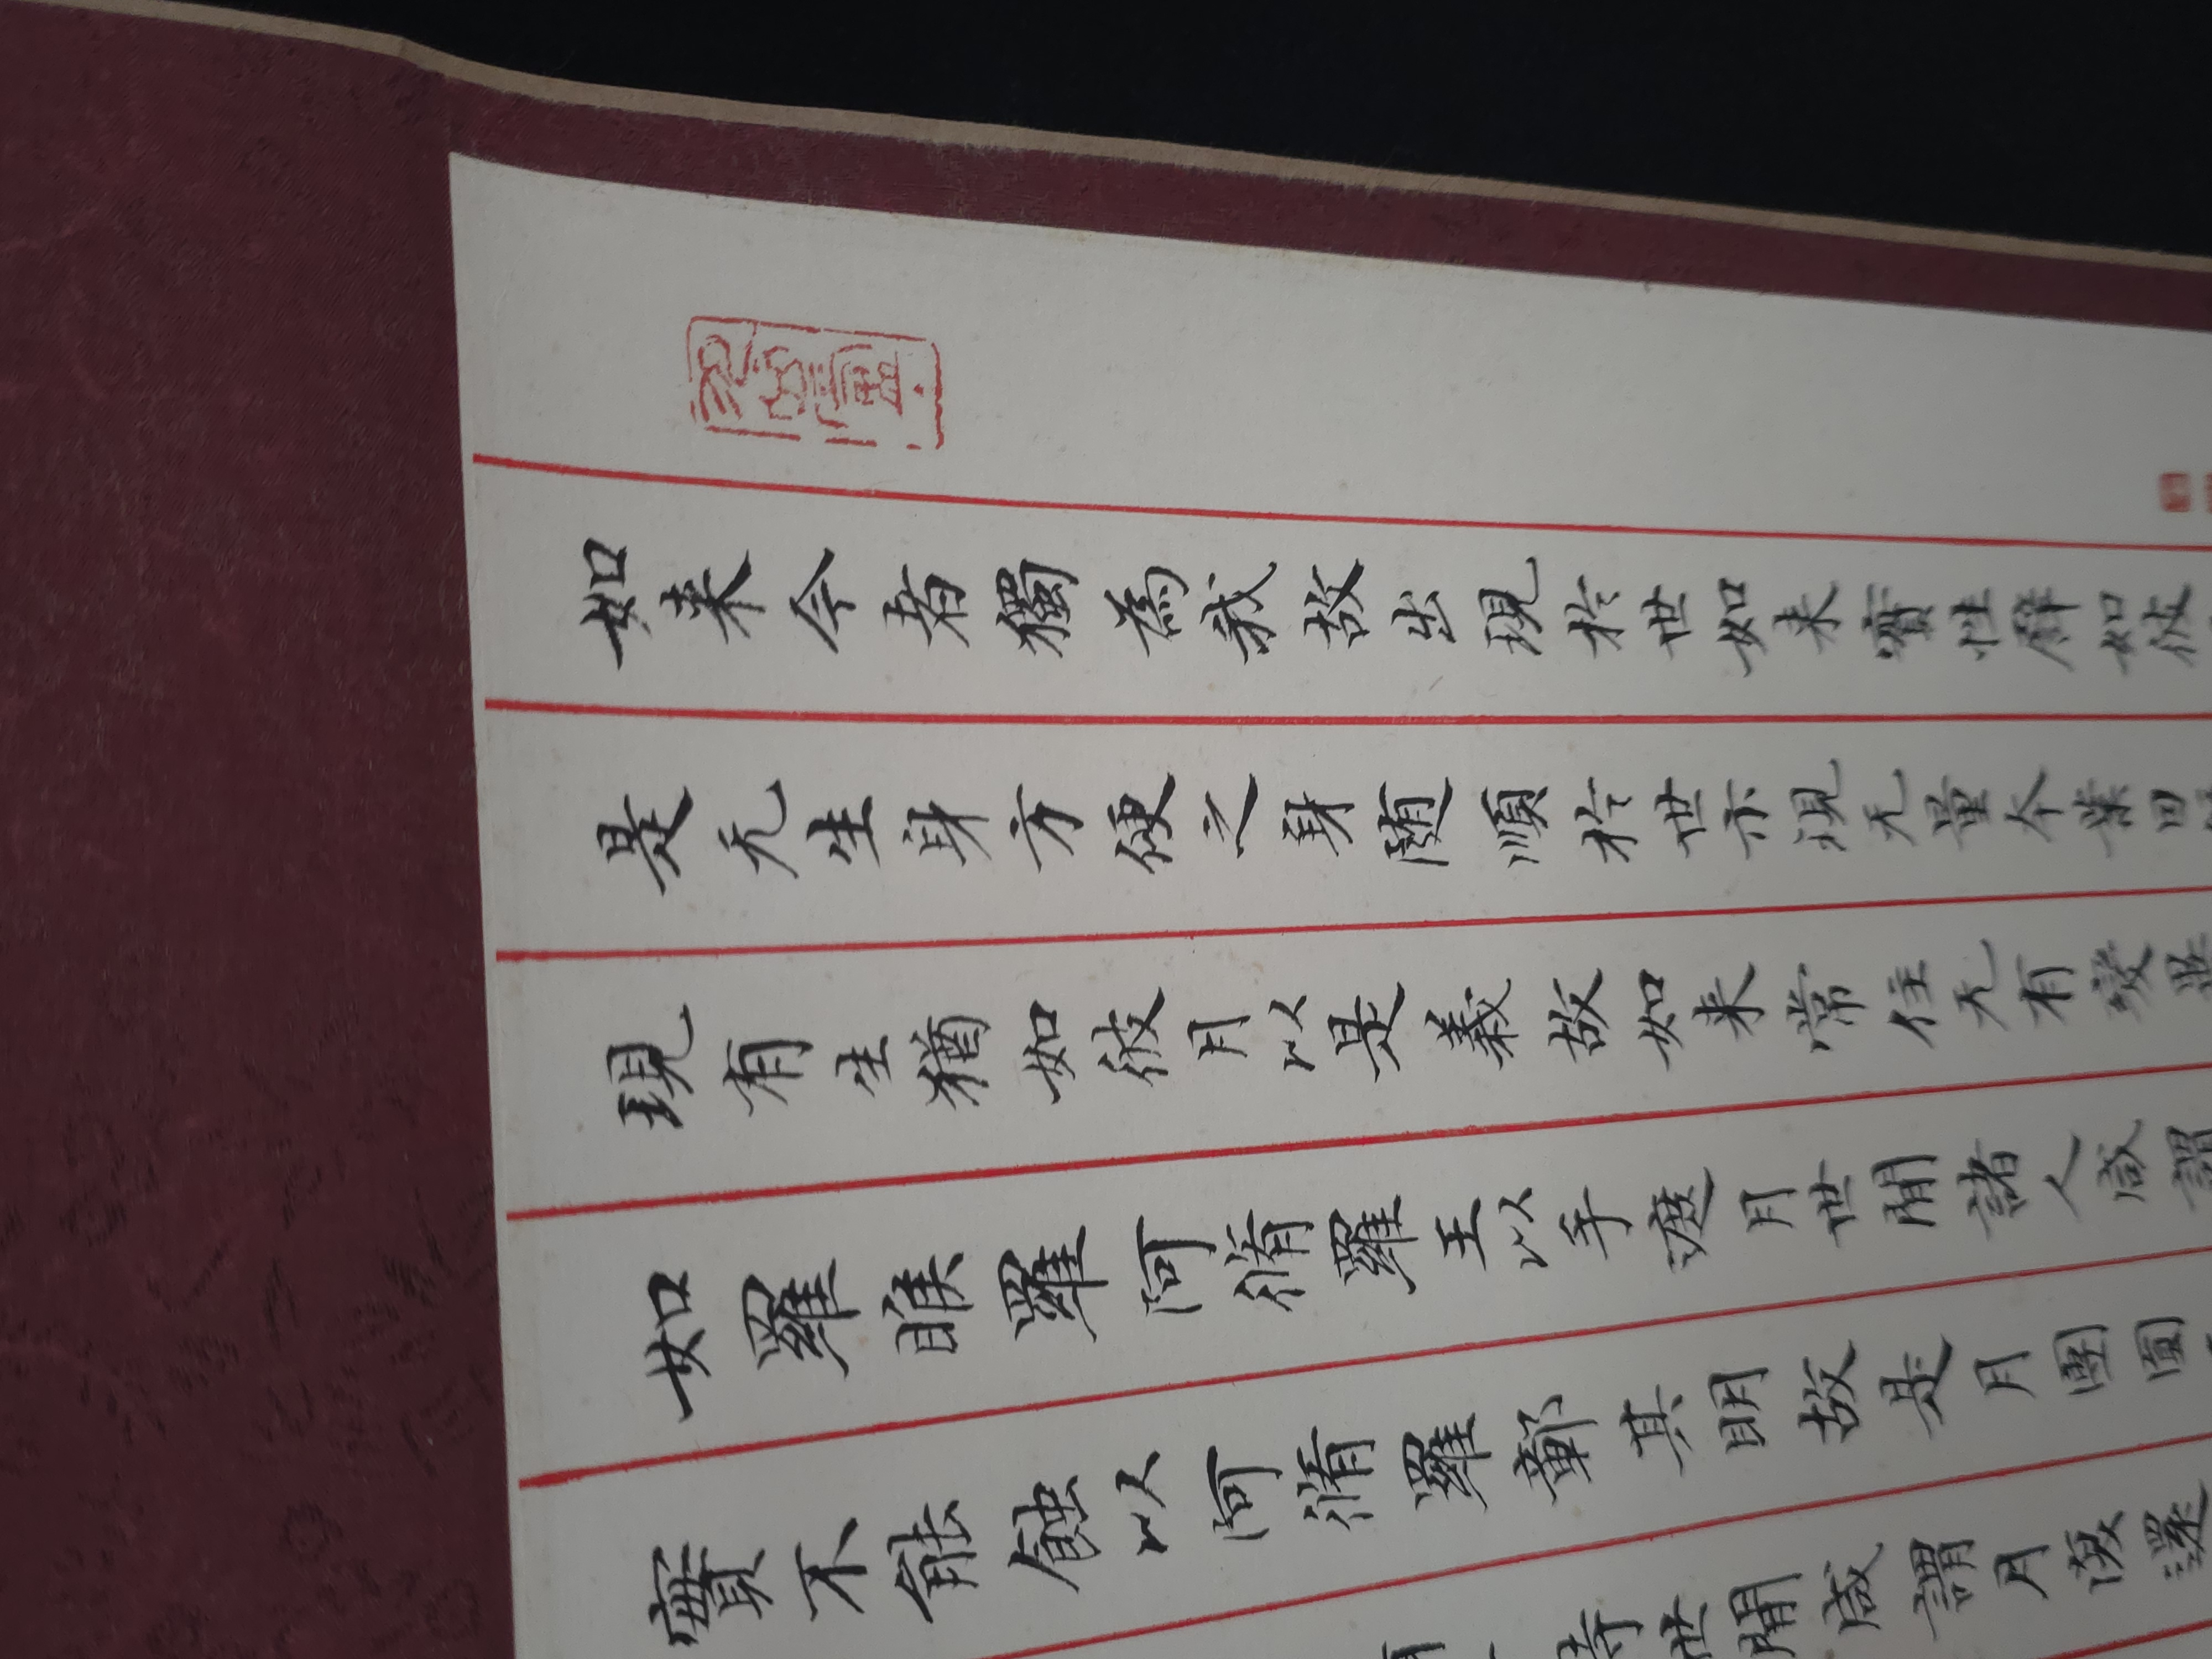 如来今者獨為我故出現於世如来實性辟如彼
是无生身方便之身随順於世示現无量本業因
現有生猶如彼月以是義故如来常住无有變異
如羅睺羅阿脩羅王以手遮月世間諸人咸謂
實不能蝕以阿脩羅鄣其明故是月團圓
時世間咸謂月復還